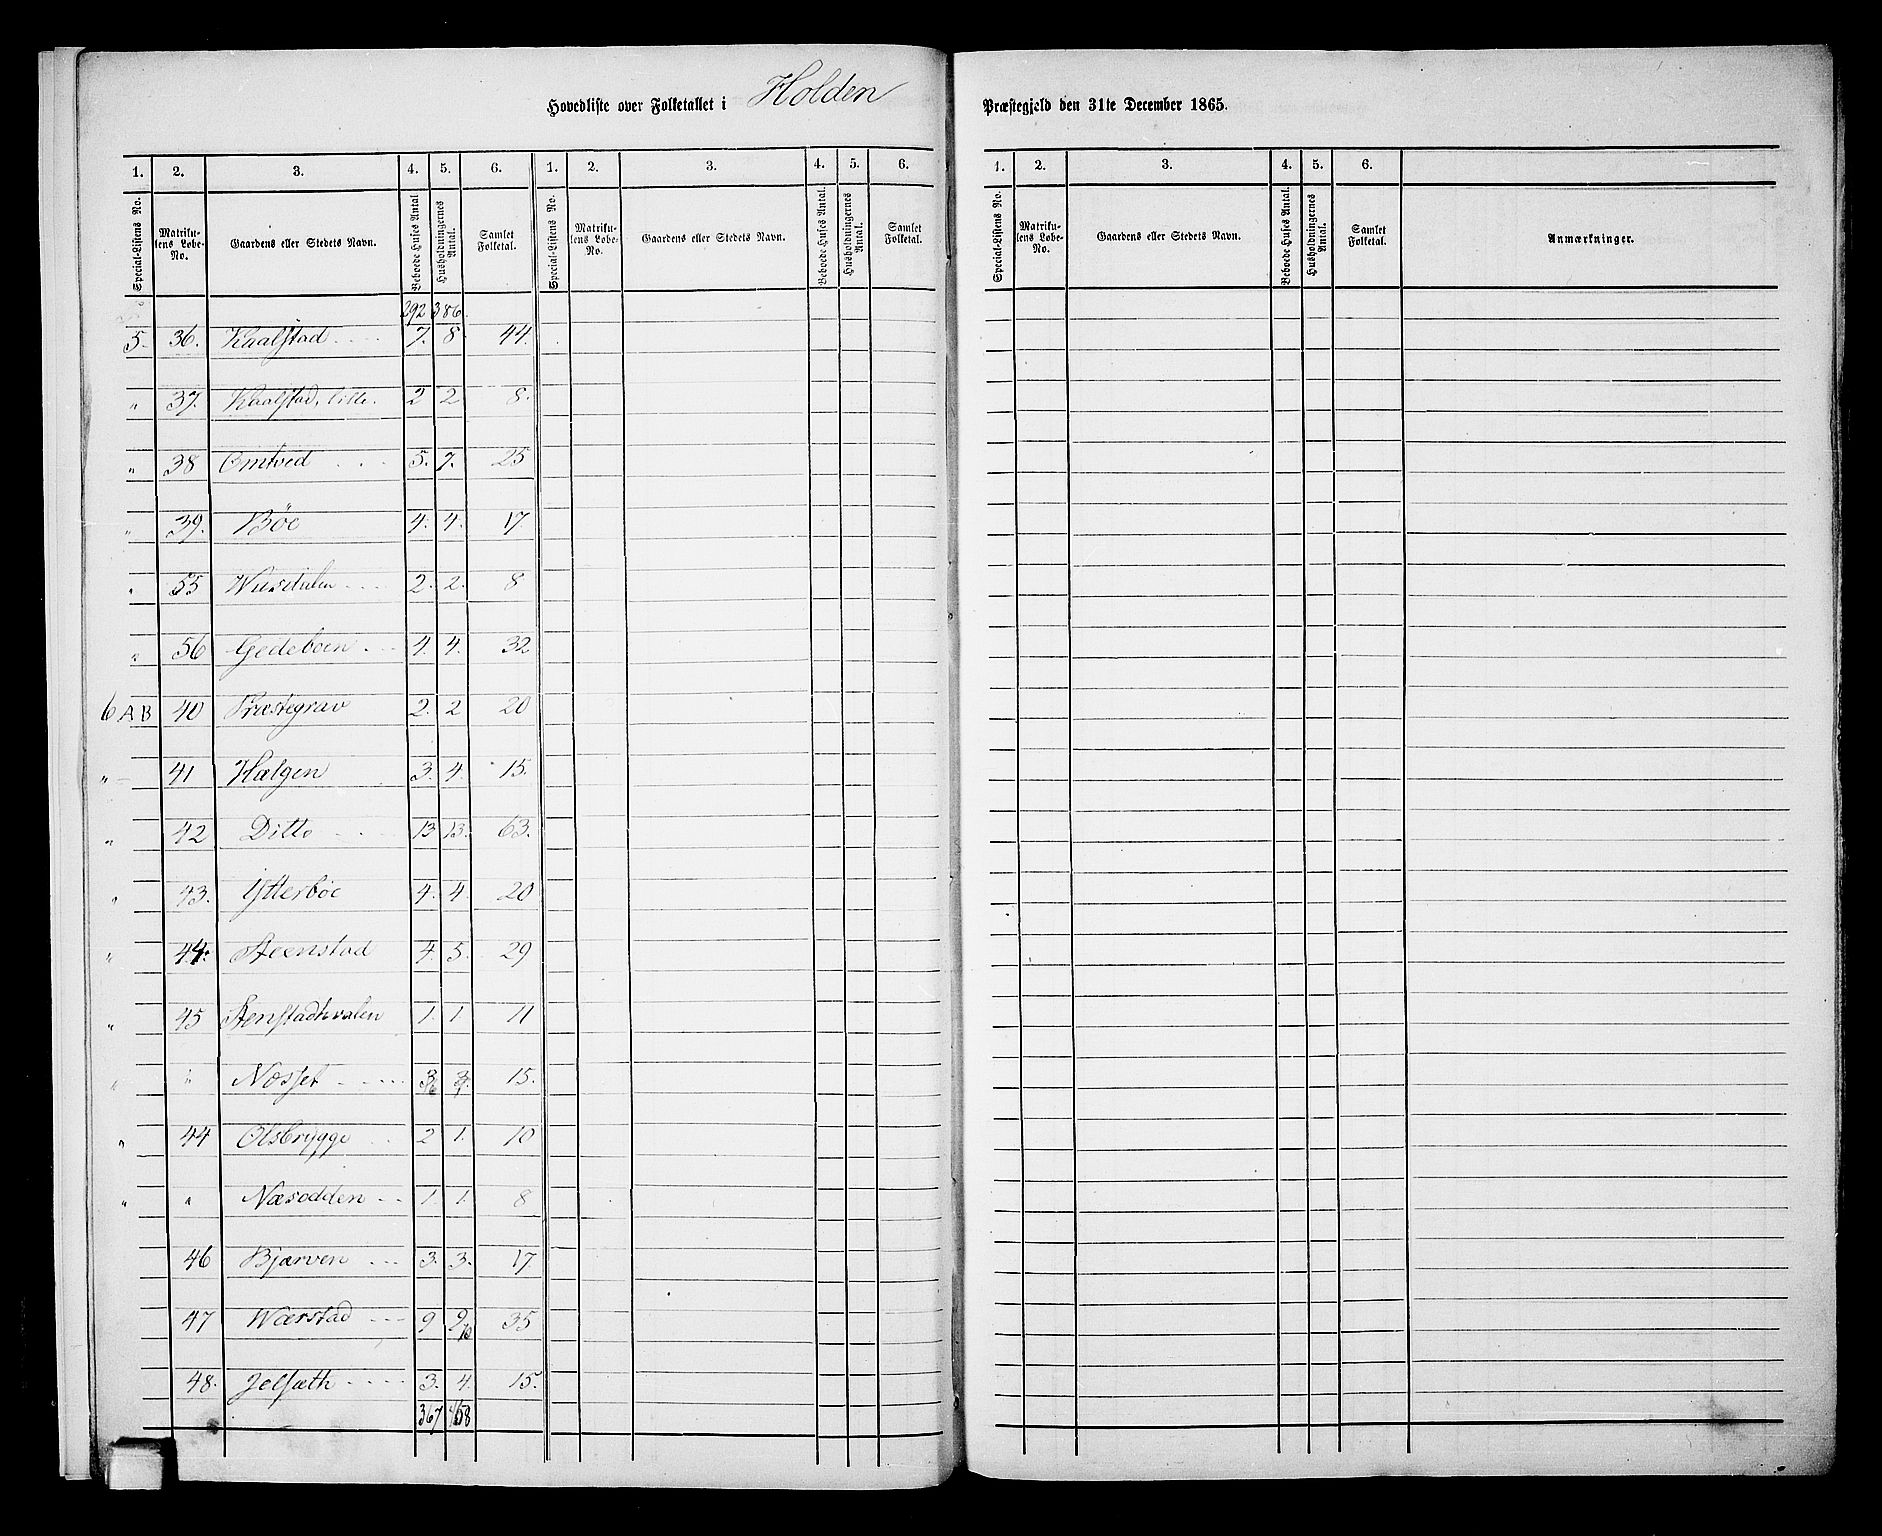 Hovedliste over Folketallet i Holden Præstegjeld den 31te December 1865.
1. 2. 3. 4. 5. 6. 1. 2. 3. 4. 5. 6.
Special-Listens No. Matrikulens Løbe-No. Gaardens eller Stedets Navn. Beboede Huses Antal Husholdningernes Antal. Samlet Folketal. Special-Listens No. Matrikulens Løbe-No. Gaardens eller Stedets Navn. Beboede Huses Antal. Husholdningernes Antal. Samlet Folketal.
292 386.
5. 36. Kaalstad .... 7. 8. 44.
" 37. Kaalstad, lille. 2 2. 8.
" 38 Omtved ... 5. 7. 25
" 39. Böe 4. 4. 17.
" 55 .... 2. 2. 8
" 56 Gedeboen ... 4. 4. 32
6 AB 40 Præstegrav 2. 2 20
" 41 Hælgen 3. 4. 15.
" 42 Ditto .... 13 13. 63.
" 43. Ytterböe 4. 4. 20
" 44. Steenstad 4. 5. 29
" 45 Stenstadhvalen 1. 1. 11
" " Næsset ..... 3 3. 15.
" 44 Olsbrygge .. 2 1. 10
" " Næsodden .. 1. 1. 8
46 Bjærven ... 3. 3. 17
47 Wærstad ... 9 9 10 35
48. Jelsæth .... 3. 4. 15.
367 458
1. 2. 3. 4. 5. 6.
Special-Listens No. Matrikulens Løbe-No. Gaardens eller Stedets Navn. Beboede Huses Antal. Husholdningernes Antal. Samlet Folketal. Anmærkninger.